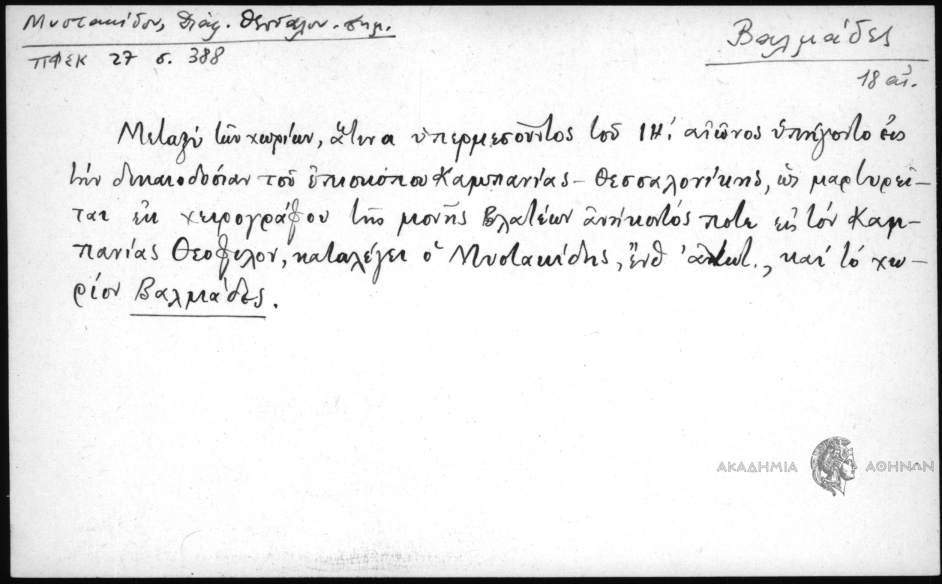 Μυστακίδου, Διάφ. Θεσσαλον. σημ.
ΠΦΕΚ 27 σ. 388
Βαλμάδες
18 αἰ.
Μεταξὺ τῶν χωρίων, ἅτινα ὑπερμεσοῦντος τοῦ ΙΗ΄ αἰῶνος ὑπήγοντο εἰς
τὴν δικαιοδοσίαν τοῦ ἐπισκόπου Καμπανίας - Θεσσαλονίκης, ὡς μαρτυρεῖ-
ται ἐκ χειρογράφου τῆς μονῆς Βλατέων ἀνήκοντός ποτε εἰς τὸν Καμ-
πανίας Θεόφιλον, καταλέγει ὁ Μυστακίδης, ἔνθ᾽ ἀνωτ., καὶ τὸ χω-
ρίον Βαλμιάδες.
ΑΚΑΔΗΜΙΑ ΑΘΗΝΩΝ